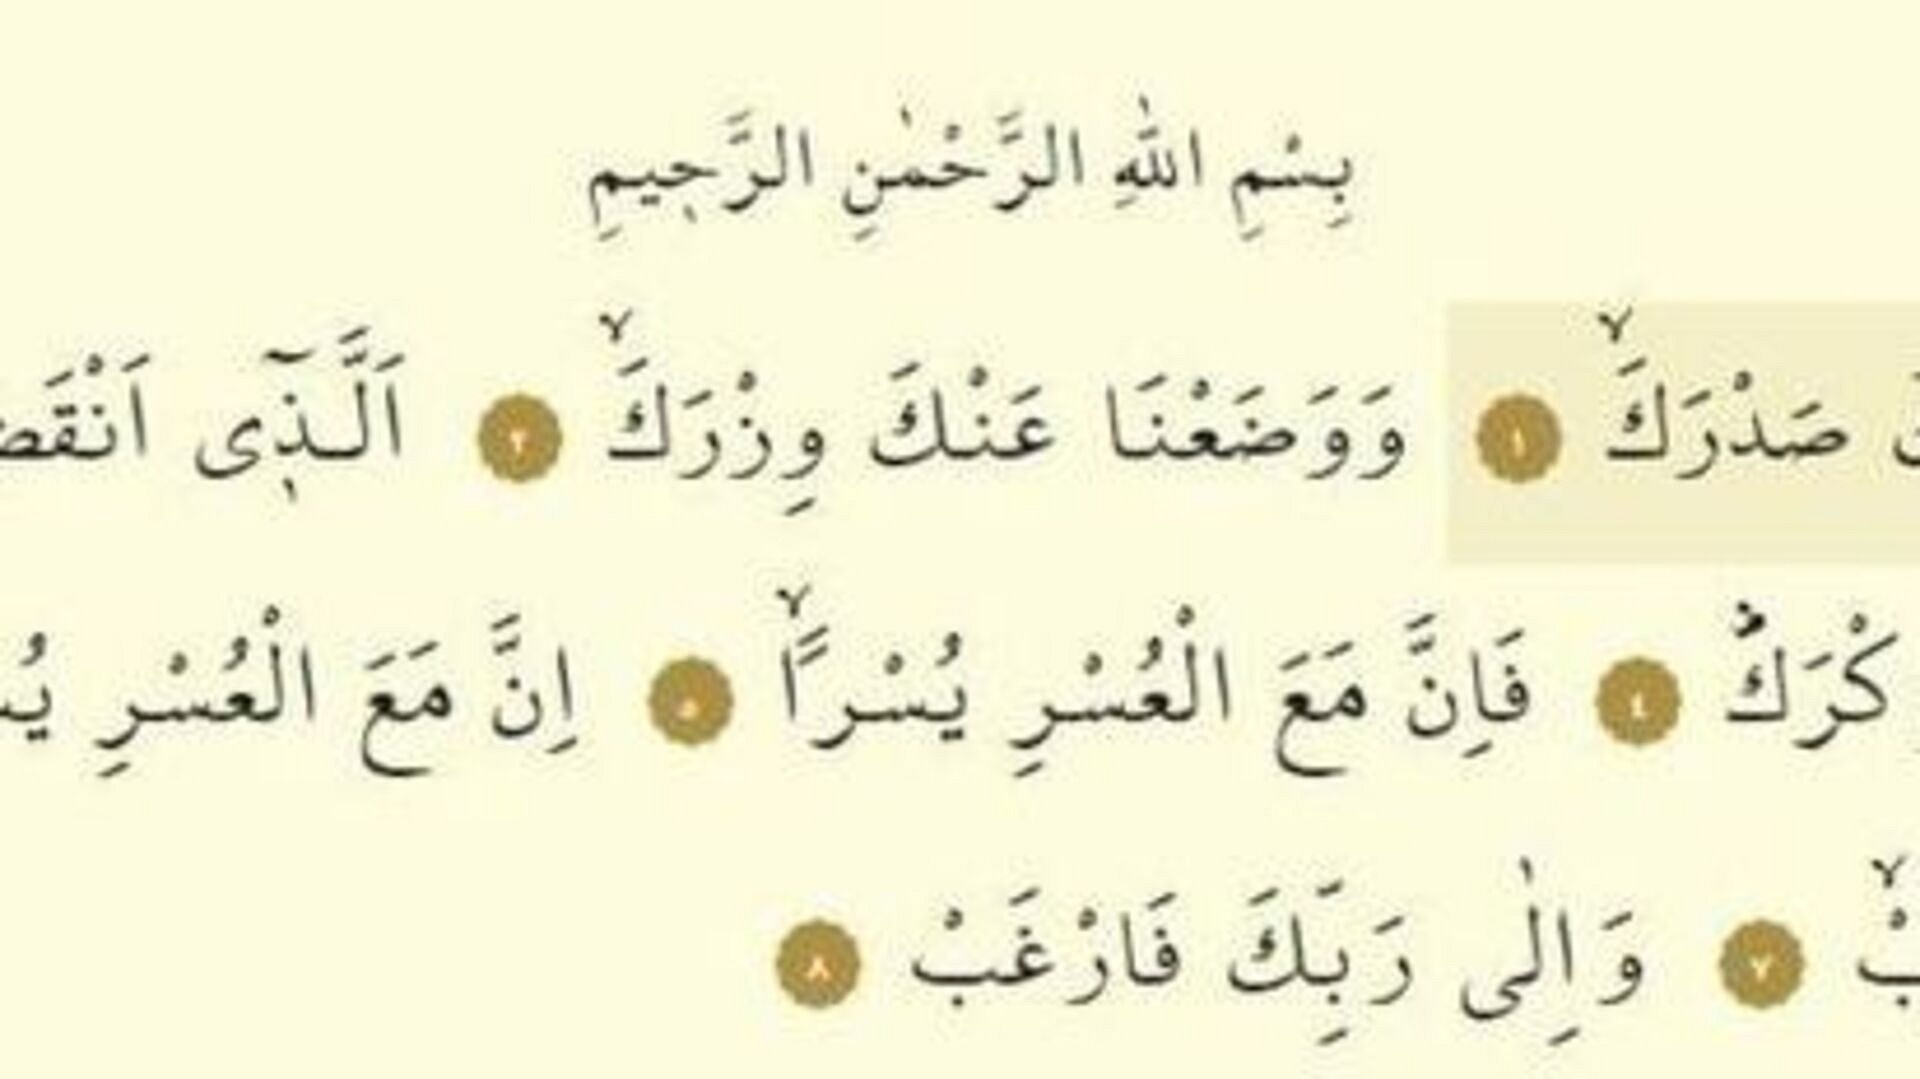 بِسْمِ اللّٰهِ الرَّحْمٰنِ الرَّحٖيمِ
صَدْرَكَۙ ١ وَوَضَعْنَا عَنْكَ وِزْرَكَۙ ٢ اَلَّـذٖٓى
كْرَكَؕ ٤ فَاِنَّ مَعَ الْعُسْرِ يُسْراًۙ ٥ اِنَّ مَعَ الْعُسْرِ
٧ وَاِلٰى رَبِّكَ فَارْغَبْ ٨